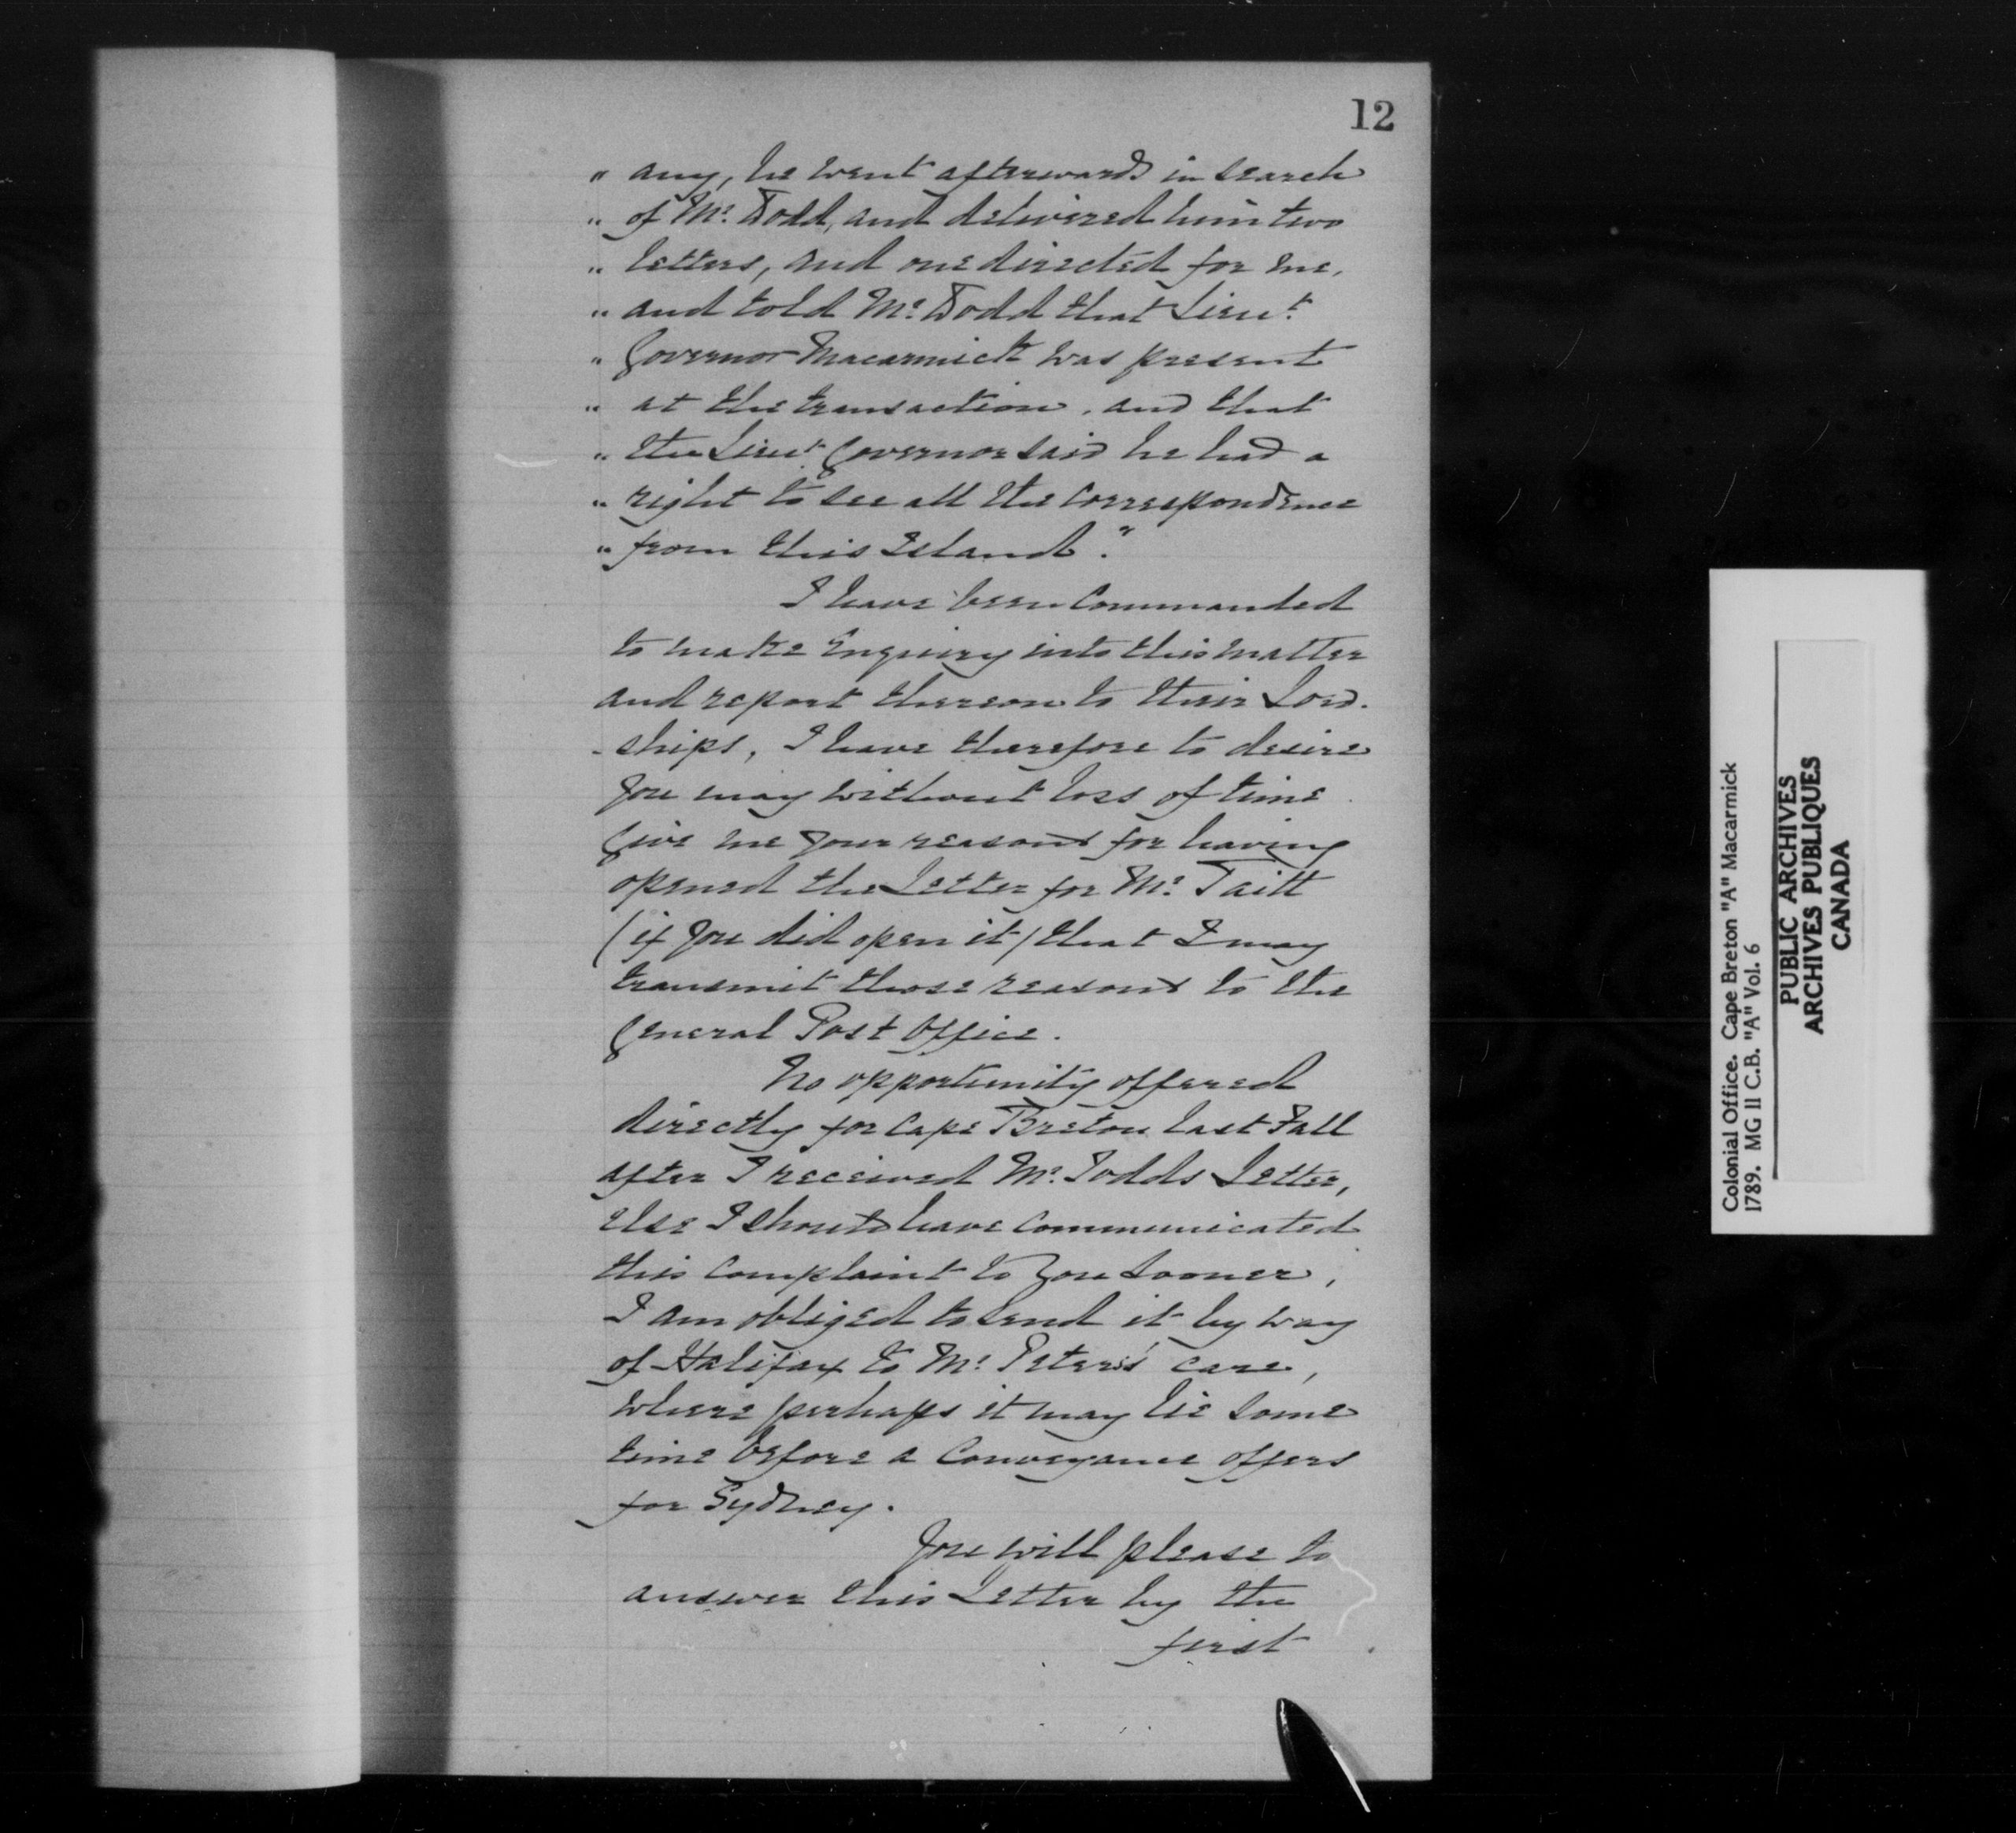 12
" any, he went afterwards in search
" of Mr. Dodd, and delivered him two
" letters, and one directed for me,
" and told Mr. Dodd that Lieut.
" Governor Macarmick was present
" at the transaction, and that
" the Lieut. Governor said he had a
" right to see all the Correspondence
" from this Island."
I have been Commanded
to make Enquiry into this matter
and report thereon to their Lord-
-ships, I have therefore to desire
you may without loss of time
Give me your reasons for having
opened the Letter for Mr. Taitt
(if you did open it) that I may
transmit those reasons to the
General Post Office.
No opportunity offered
directly for Cape Breton last Fall
after I received Mr. Todds Letter,
else I should have Communicated
this Complaint to you sooner,
I am obliged to send it by way
of Halifax to Mr. Peters's care,
where perhaps it may lie some
time before a Conveyance offers
for Sydney.
You will please to
answer this Letter by the
first
Colonial Office. Cape Breton "A" Macarmick
1789. MG 11 C.B. "A" Vol. 6
PUBLIC ARCHIVES
ARCHIVES PUBLIQUES
CANADA